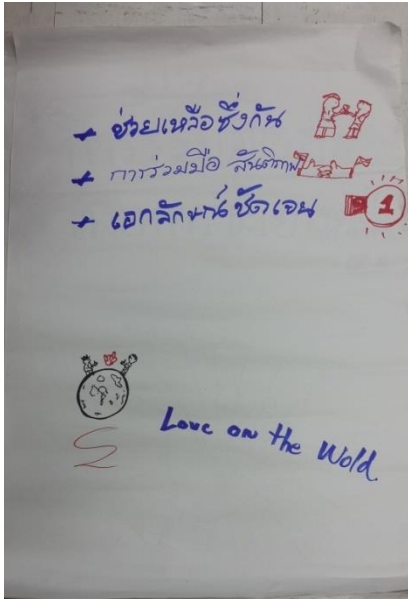 ช่วยเหลือซึ่งกัน
การร่วมมือ สันติภาพ
เอกลักษณ์ ชัดเจน
1
Love on the Wold.